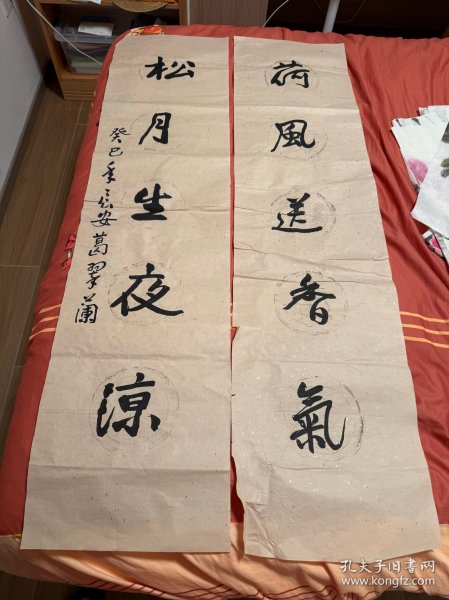 荷風送香氣
松月生夜涼
癸巳年長安葛翠蘭
孔夫子旧书网
www.kongfz.com